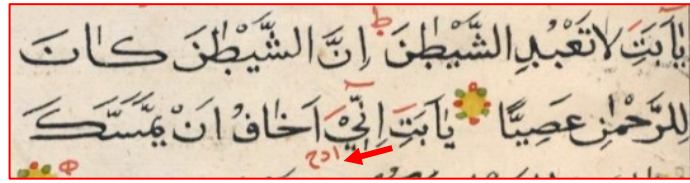 يٰٓاَبَتِ لَا تَعْبُدِ الشَّيْطٰنَ ط اِنَّ الشَّيْطٰنَ كَانَ
لِلرَّحْمٰنِ عَصِيًّا يٰٓاَبَتِ اِنِّيْٓ اَخَافُ اَنْ يَمَسَّكَ